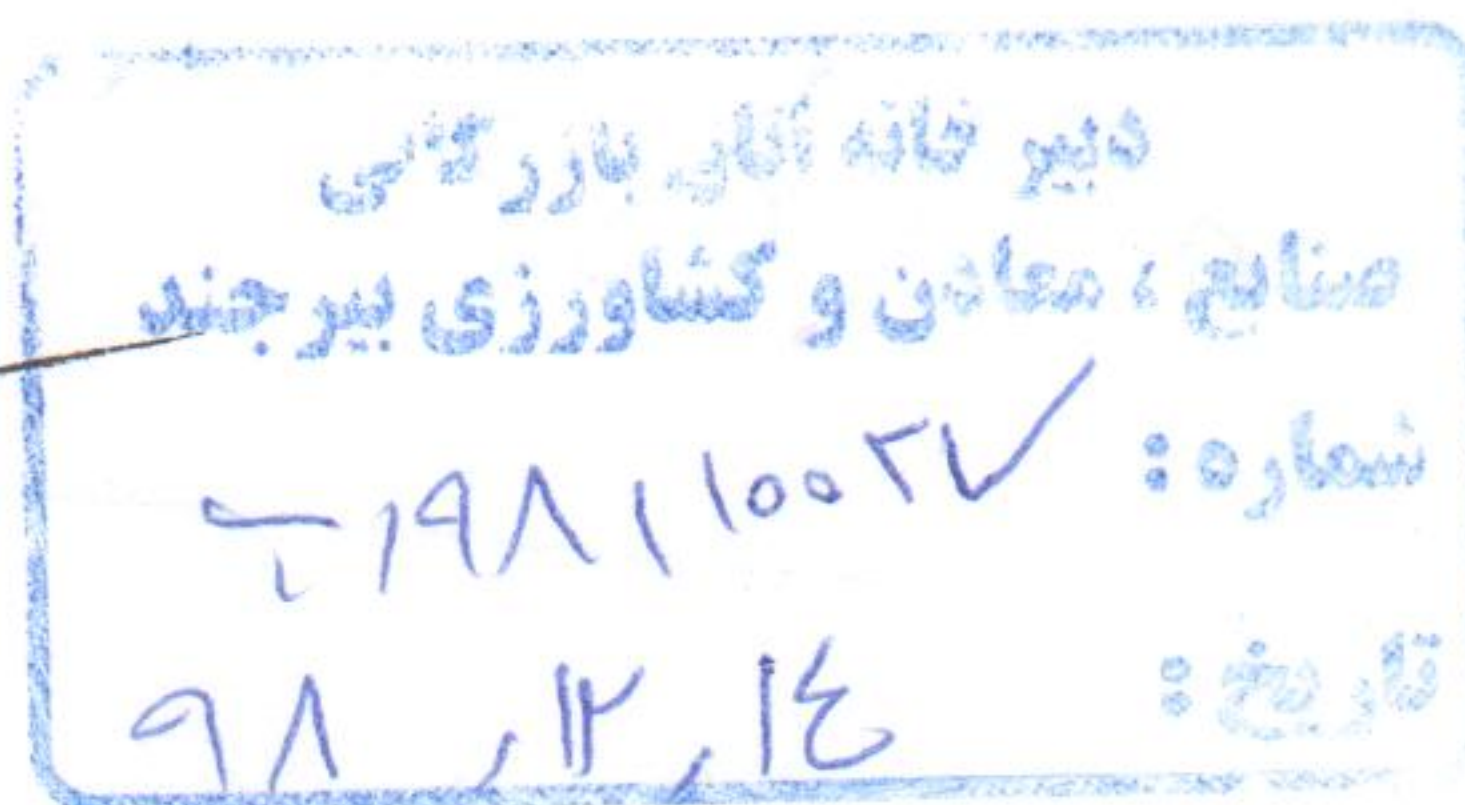 دبیر خانه اتاق بازرگانی
صنایع ، معادن و کشاورزی بیرجند
شماره : ۹۸/۱۰۰۲۷/
تاریخ : ۹۸/۱۲/۱۴